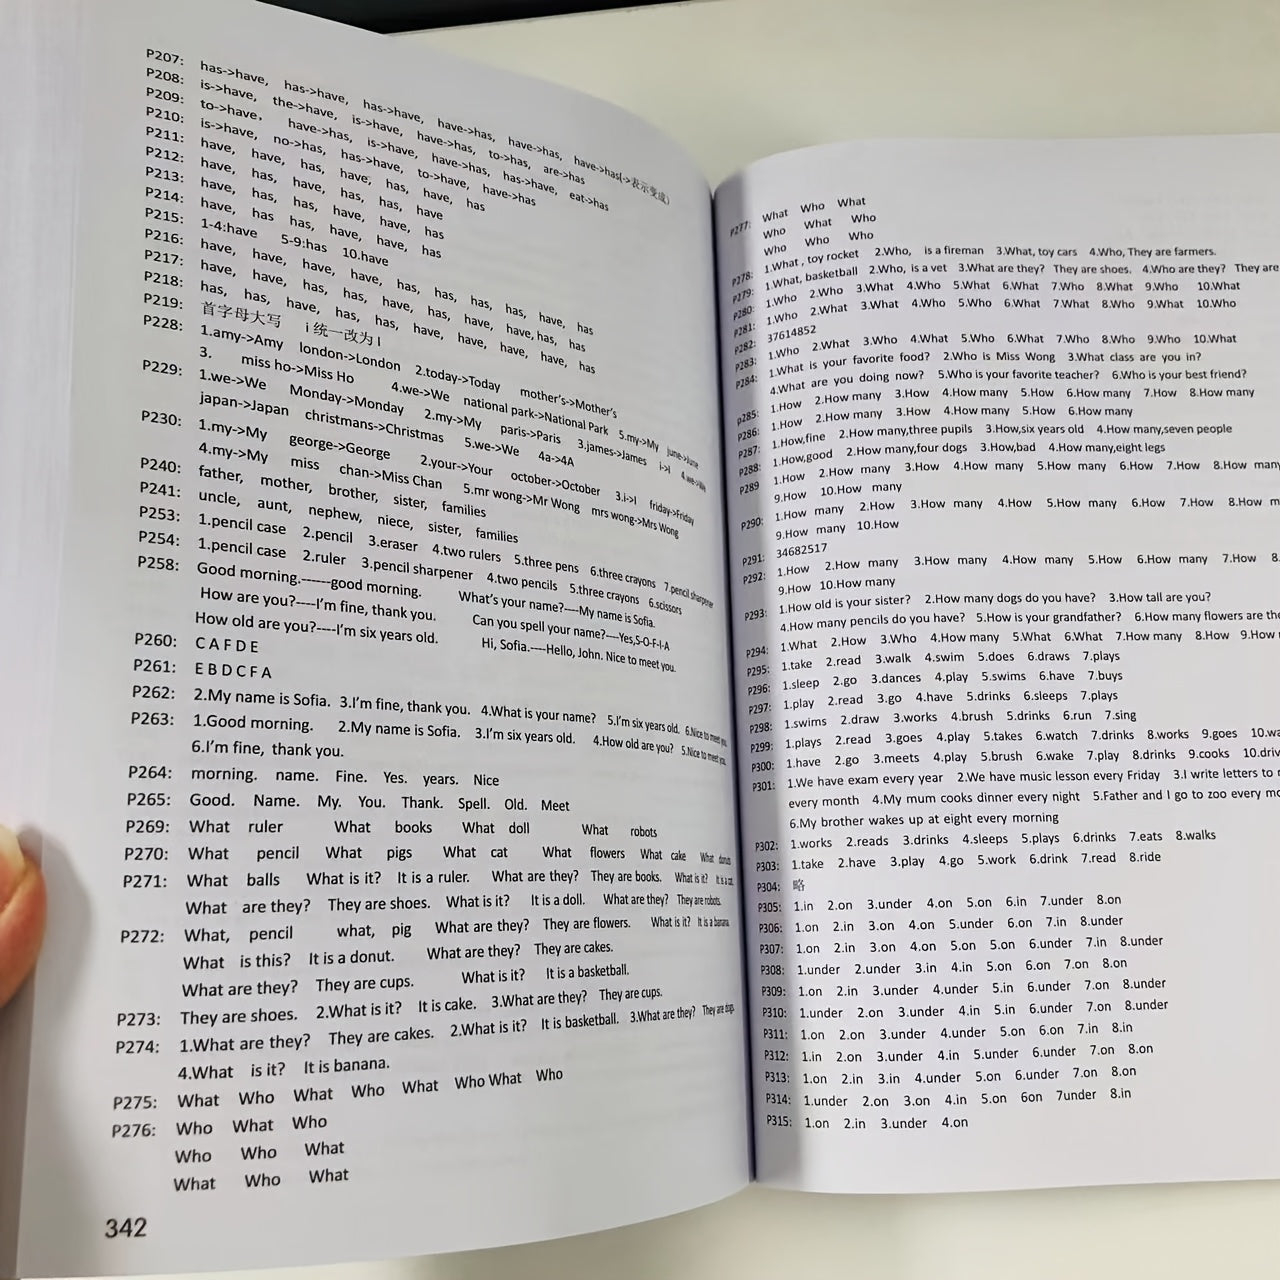 P207: has->have, has->have, has->have, have->has, have->has, have->has(->表示变成)
P208: is->have, the->have, is->have, have->has, to->has, are->has
P209: to->have, have->has, is->have, have->has, has->have, eat->has
P210: is->have, no->has, has->have, to->have, have->has
P211: have, have, has, have, has, have, has
P212: have, has, have, has, has, have
P213: have, has, has, have, have, has
P214: have, has has, have, have, has
P215: 1-4:have 5-9:has 10.have
P216: have, have, have, have, has, has, has, has, have, has
P217: have, have, has, has, have, has, have, have,has, has
P218: has, has, have, has, has, have, have, have, have, has
P219: 首字母大写 i 统一改为 I
P228: 1.amy->Amy london->London 2.today->Today mother's->Mother's
3. miss ho->Miss Ho 4.we->We national park->National Park 5.my->My june->June
P229: 1.we->We Monday->Monday 2.my->My paris->Paris 3.james->James i->I 4.we->We
japan->Japan christmans->Christmas 5.we->We 4a->4A
P230: 1.my->My george->George 2.your->Your october->October 3.i->I friday->Friday
4.my->My miss chan->Miss Chan 5.mr wong->Mr Wong mrs wong->Mrs Wong
P240: father, mother, brother, sister, families
P241: uncle, aunt, nephew, niece, sister, families
P253: 1.pencil case 2.pencil 3.eraser 4.two rulers 5.three pens 6.three crayons 7.pencil sharpener
P254: 1.pencil case 2.ruler 3.pencil sharpener 4.two pencils 5.three crayons 6.scissors
P258: Good morning.------good morning. What's your name?----My name is Sofia.
How are you?----I'm fine, thank you. Can you spell your name?----Yes,S-O-F-I-A
How old are you?----I'm six years old. Hi, Sofia.----Hello, John. Nice to meet you.
P260: C A F D E
P261: E B D C F A
P262: 2.My name is Sofia. 3.I'm fine, thank you. 4.What is your name? 5.I'm six years old. 6.Nice to meet you.
P263: 1.Good morning. 2.My name is Sofia. 3.I'm six years old. 4.How old are you? 5.Nice to meet you.
6.I'm fine, thank you.
P264: morning. name. Fine. Yes. years. Nice
P265: Good. Name. My. You. Thank. Spell. Old. Meet
P269: What ruler What books What doll What robots
P270: What pencil What pigs What cat What flowers What cake What donuts
P271: What balls What is it? It is a ruler. What are they? They are books. What is it? It is a cat.
What are they? They are shoes. What is it? It is a doll. What are they? They are robots.
P272: What, pencil what, pig What are they? They are flowers. What is it? It is a banana.
What is this? It is a donut. What are they? They are cakes.
What are they? They are cups. What is it? It is a basketball.
P273: They are shoes. 2.What is it? It is cake. 3.What are they? They are cups.
P274: 1.What are they? They are cakes. 2.What is it? It is basketball. 3.What are they? They are dogs.
4.What is it? It is banana.
P275: What Who What Who What Who What Who
P276: Who What Who
Who Who What
What Who What
342
P277: What Who What
Who What Who
Who Who Who
P278: 1.What , toy rocket 2.Who, is a fireman 3.What, toy cars 4.Who, They are farmers.
P279: 1.What, basketball 2.Who, is a vet 3.What are they? They are shoes. 4.Who are they? They are
P280: 1.Who 2.Who 3.What 4.Who 5.What 6.What 7.Who 8.What 9.Who 10.What
P281: 1.Who 2.What 3.What 4.Who 5.Who 6.What 7.What 8.Who 9.What 10.Who
P282: 37614852
P283: 1.Who 2.What 3.Who 4.What 5.Who 6.What 7.Who 8.Who 9.Who 10.What
P284: 1.What is your favorite food? 2.Who is Miss Wong 3.What class are you in?
4.What are you doing now? 5.Who is your favorite teacher? 6.Who is your best friend?
P285: 1.How 2.How many 3.How 4.How many 5.How 6.How many 7.How 8.How many
P286: 1.How 2.How many 3.How 4.How many 5.How 6.How many
P287: 1.How,fine 2.How many,three pupils 3.How,six years old 4.How many,seven people
P288: 1.How,good 2.How many,four dogs 3.How,bad 4.How many,eight legs
P289 1.How 2.How many 3.How 4.How many 5.How many 6.How 7.How 8.How many
9.How 10.How many
P290: 1.How many 2.How 3.How many 4.How 5.How many 6.How 7.How 8.How
9.How many 10.How
P291: 34682517
P292: 1.How 2.How many 3.How many 4.How many 5.How 6.How many 7.How 8.
9.How 10.How many
P293: 1.How old is your sister? 2.How many dogs do you have? 3.How tall are you?
4.How many pencils do you have? 5.How is your grandfather? 6.How many flowers are
P294: 1.What 2.How 3.Who 4.How many 5.What 6.What 7.How many 8.How 9.How
P295: 1.take 2.read 3.walk 4.swim 5.does 6.draws 7.plays
P296: 1.sleep 2.go 3.dances 4.play 5.swims 6.have 7.buys
P297: 1.play 2.read 3.go 4.have 5.drinks 6.sleeps 7.plays
P298: 1.swims 2.draw 3.works 4.brush 5.drinks 6.run 7.sing
P299: 1.plays 2.read 3.goes 4.play 5.takes 6.watch 7.drinks 8.works 9.goes 10.
P300: 1.have 2.go 3.meets 4.play 5.brush 6.wake 7.play 8.drinks 9.cooks 10.
P301: 1.We have exam every year 2.We have music lesson every Friday 3.I write letters to
every month 4.My mum cooks dinner every night 5.Father and I go to zoo every
6.My brother wakes up at eight every morning
P302: 1.works 2.reads 3.drinks 4.sleeps 5.plays 6.drinks 7.eats 8.walks
P303: 1.take 2.have 3.play 4.go 5.work 6.drink 7.read 8.ride
P304: 略
P305: 1.in 2.on 3.under 4.on 5.on 6.in 7.under 8.on
P306: 1.on 2.in 3.on 4.on 5.under 6.on 7.in 8.under
P307: 1.on 2.in 3.on 4.on 5.on 5.on 6.under 7.in 8.under
P308: 1.under 2.under 3.in 4.in 5.on 6.on 7.on 8.on
P309: 1.on 2.in 3.under 4.under 5.in 6.under 7.on 8.under
P310: 1.under 2.on 3.under 4.in 5.in 6.under 7.on 8.under
P311: 1.on 2.on 3.under 4.under 5.on 6.on 7.in 8.in
P312: 1.in 2.on 3.under 4.in 5.under 6.under 7.on 8.on
P313: 1.on 2.in 3.in 4.under 5.on 6.under 7.on 8.on
P314: 1.under 2.on 3.on 4.in 5.on 6on 7under 8.in
P315: 1.on 2.in 3.under 4.on